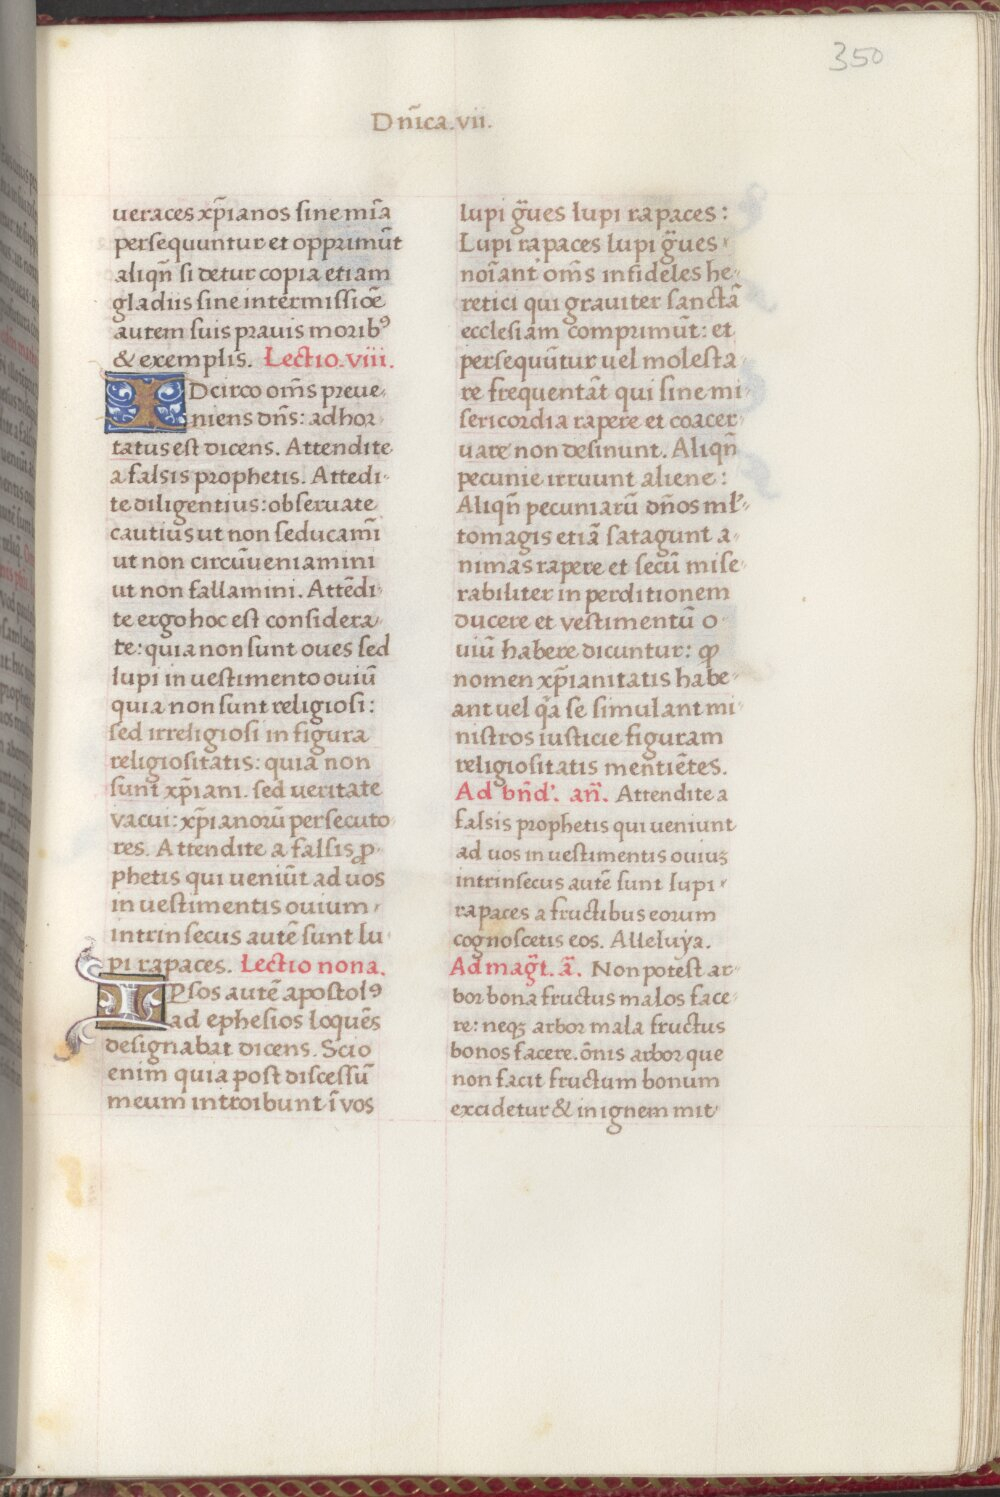 350
Dñica.vii.
ueraces xp̃ianos sine mĩa
persequuntur et opprimũt
aliqñ si detur copia etiam
gladiis sine intermissiõe
autem suis prauis morib⁹
& exemplis. Lectio.viii.
IDcirco om̃s preue-
niens dñs: adhor-
tatus est dicens. Attendite
a falsis prophetis. Attedi-
te diligentius: obseruate
cautius ut non seducami̅
ut non circũueniamini
ut non fallamini. Attẽdi-
te ergo hoc est considera-
te: quia non sunt oues sed
lupi in uestimento ouiũ
quia non sunt religiosi:
sed irreligiosi in figura
religiositatis: quia non
sunt xp̃iani. sed ueritate
vacui: xp̃ianorũ persecuto-
res. Attendite a falsis ꝓ-
phetis qui ueniũt ad uos
in uestimentis ouium-
intrinsecus autẽ sunt lu-
pi rapaces. Lectio nona.
IPsos autẽ apostol⁹
ad ephesios loquẽs
designabat dicens. Scio
enim quia post discessũ
meum introibunt ĩ vos
lupi g̃ues lupi rapaces:
Lupi rapaces lupi g̃ues-
noĩant' om̃s infideles he-
retici qui grauiter sanctã
ecclesiam comprimũt: et
persequũtur uel molesta-
re frequentãt qui sine mi-
sericordia rapere et coacer-
uare non desinunt. Aliqñ
pecunie irruunt aliene:
Aliqñ pecuniarũ dños ml̃-
tomagis etiã satagunt a-
nimas rapere et secũ mise-
rabiliter in perditionem
ducere et vestimentũ o-
uiũ habere dicuntur: ꝙ
nomen xp̃ianitatis habe-
ant uel q̃a se simulant mi-
nistros iusticie figuram
religiositatis mentiẽtes.
Ad bñd'. añ. Attendite a
falsis prophetis qui ueniunt
ad uos in uestimentis ouiuꝫ
intrinsecus autẽ sunt lupi-
rapaces a fructibus eorum
cognoscetis eos. Alleluya.
Ad mag̃t. ã. Non potest ar-
bor bona fructus malos face-
re: neqꝫ arbor mala fructus
bonos facere. õnis arbor que
non facit fructum bonum
excidetur & in ignem mit-